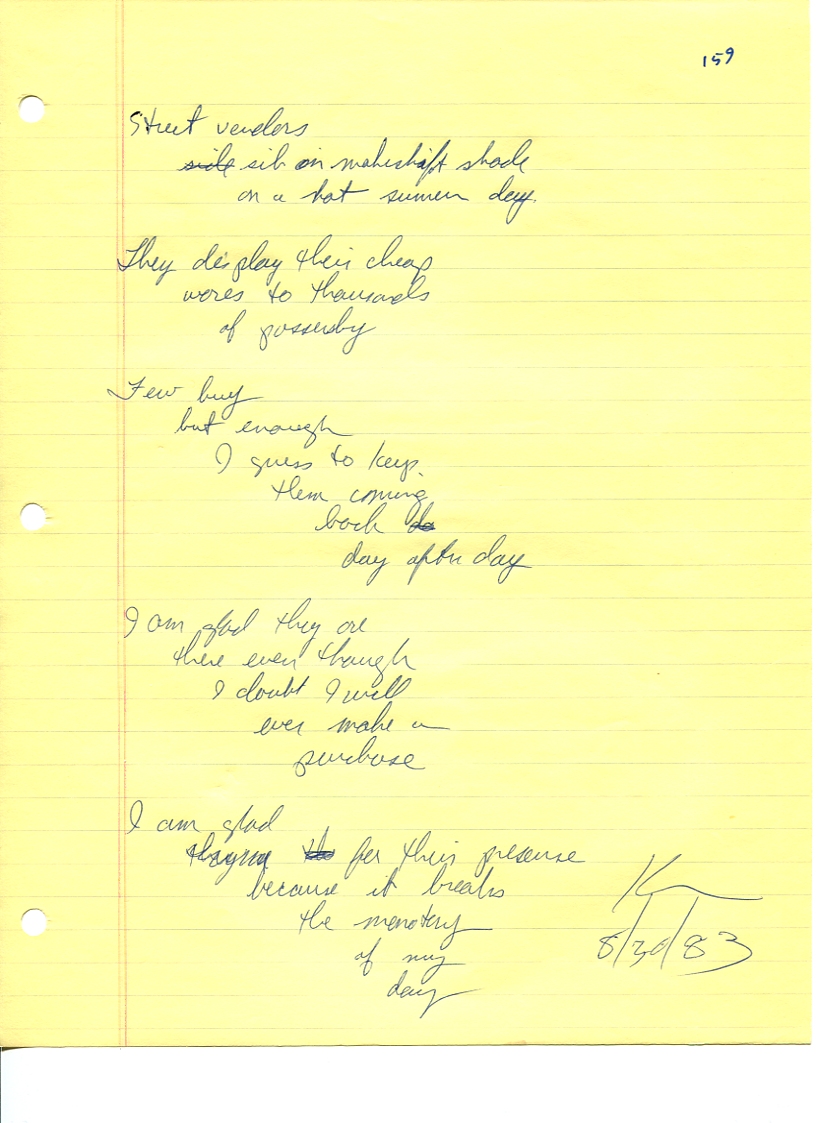 159
Street vendors
side sit in makeshift shade
on a hot summer day.
They display their cheap
wares to thousands
of passersby
Few buy
but enough
I guess to keep
them coming
back da
day after day
I am glad they are
there even though
I doubt I will
ever make a
purchase
I am glad
for their presense
because it breaks
the monotony
of my
day
8/30/83